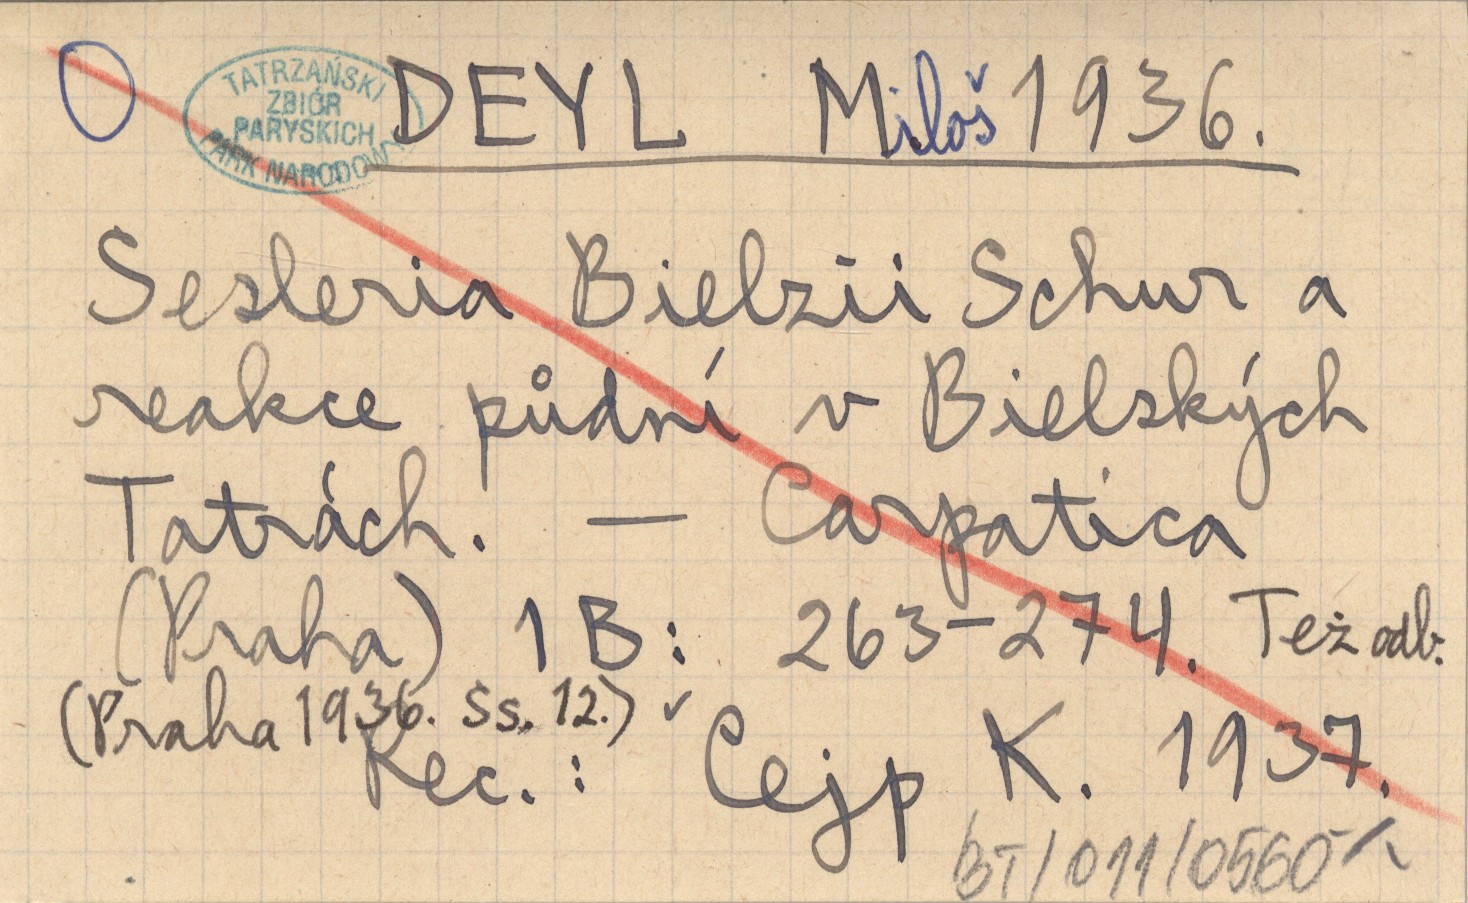 TATRZAŃSKI
ZBIÓR
PARYSKICH
PARK NARODOWY
DEYL Miloš 1936.
Sesleria Bielzii Schur a
reakce půdní v Bielských
Tatrách. — Carpatica
(Praha) 1B: 263-274. Też odb.
(Praha 1936. Ss. 12.)
Rec.: Cejp K. 1937.
BT/011/0560